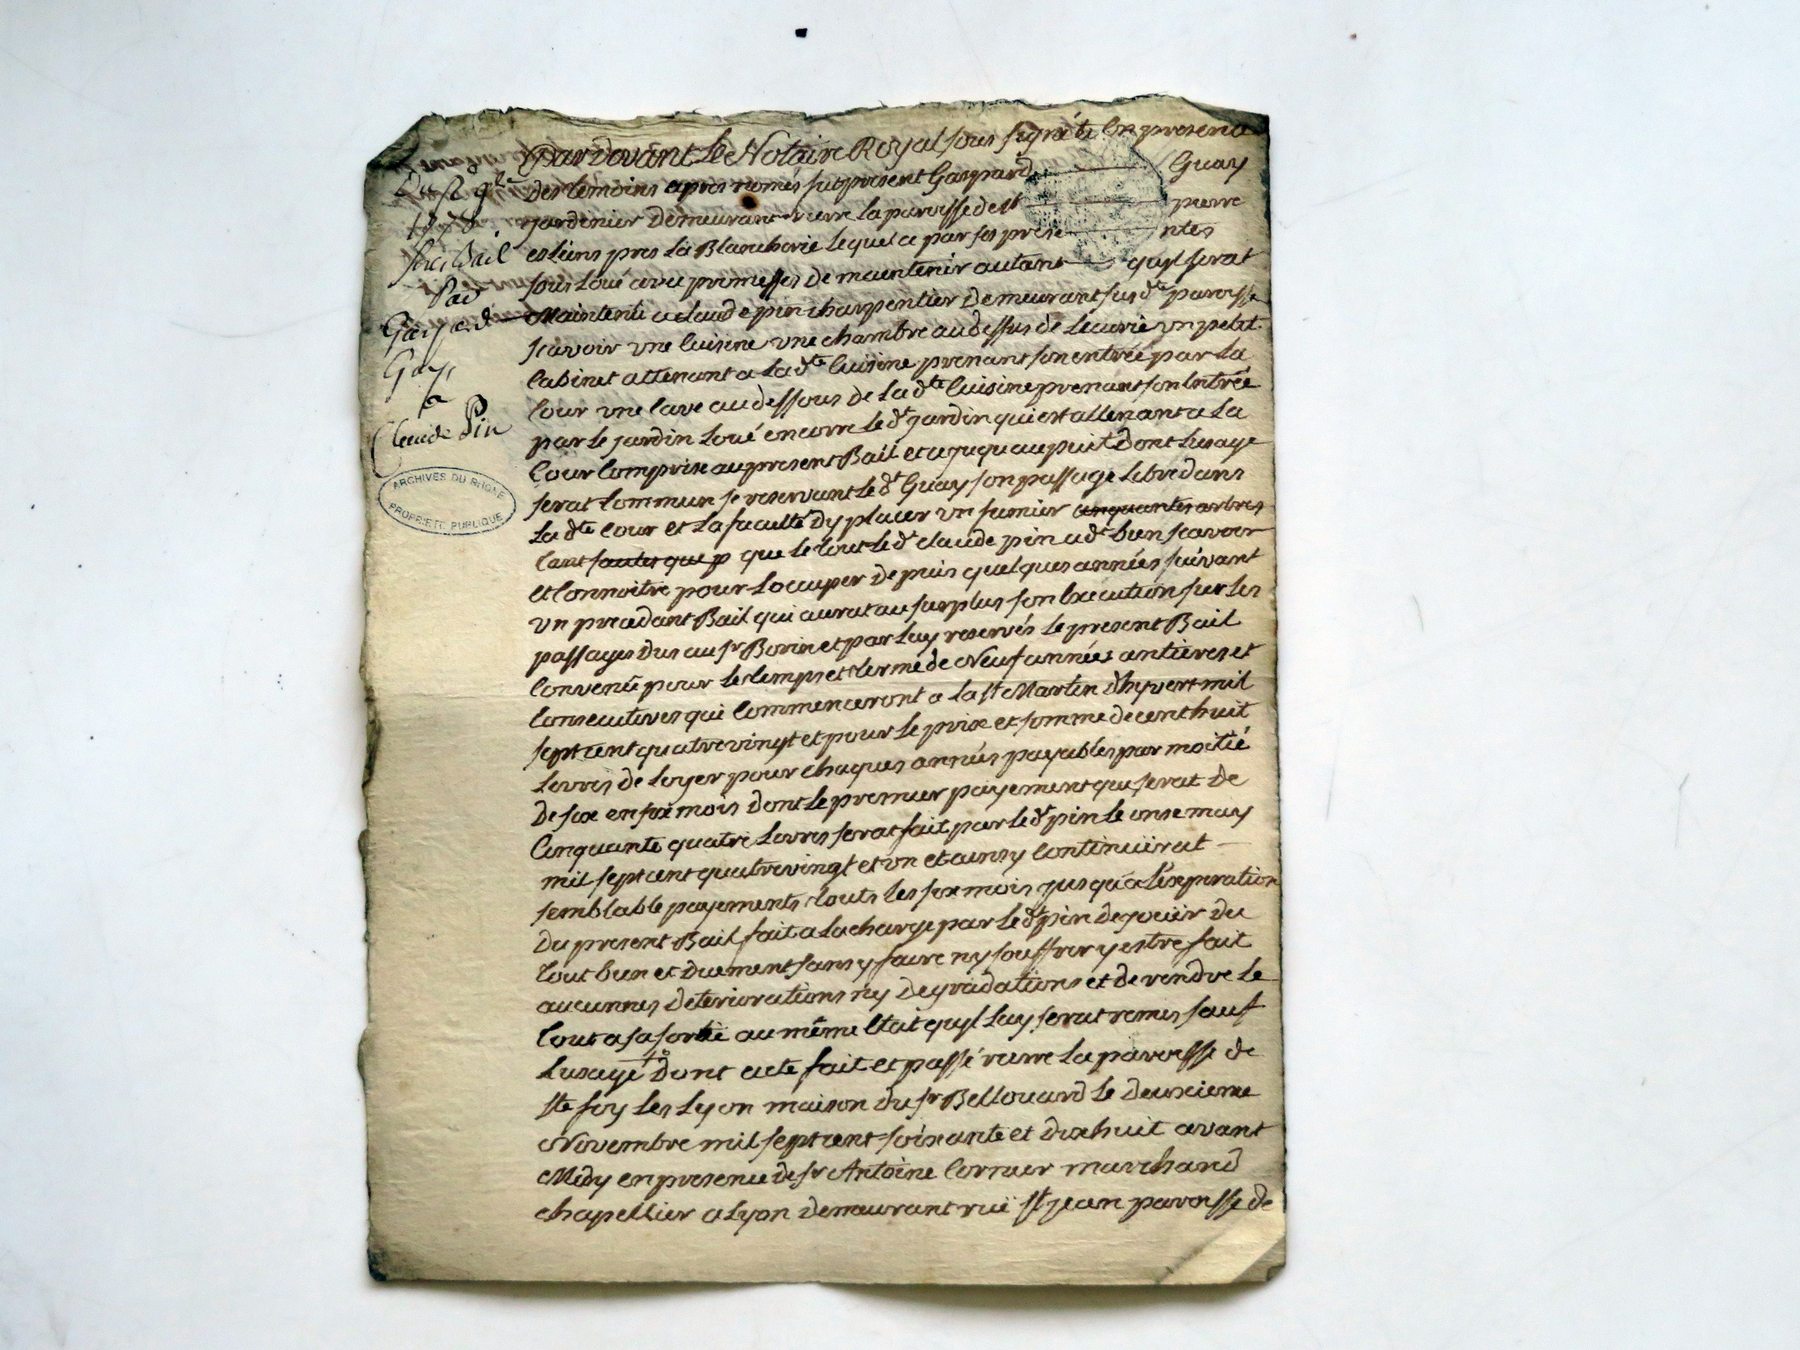 Pardevant Le Notaire Royal sous signé et En presence
Des temoins apres només fut present Gaspard Guay
jardinier demeurant rierre la paroisse de st pierre
esliens pres la Blancherie lequel a par ses prese ntes
sous Loué avec promesses de maintenir autant quyl serat
Maintenu a claude pin charpentier demeurant susdte paroisse
scavoir vne Cuisine vne chambre audessus de Lecurie vn petit
Cabinet attenant a la dte Cuisine prenant son entrée par La
Cour vne Cave audessous de la dte Cuisine prenant son Entrée
par le jardin Loué encorre Le dt jardin qui est attenant a La
Cour Comprise au present Bail et cejusquau puit Dont Lusage
serat Commun se reservant Le dt Guay son passage Libre dans
La dte Cour et La faculté dy placer vn fumier cinquantes arbres
tant sautes que p que le tout Le dt claude pin a dt bien scavoir
et Connoitre pour Loccuper depuis quelques années suivant
vn precedant Bail qui aurat au surplus son Execution sur Les
passages Dus au sr Borin et par Luy reservés Le present Bail
Convenu pour Le temps et terme de Neuf années antieres et
Consecutives qui Commenceront a la st Martin dhyvert mil
sept cent quatrevingt et pour Le prix et somme de cent huit
Livres de Loyer pour chaques années payables par moitié
De six en six mois dont Le premier payement qui serat de
Cinquante quatre Livres serat fait par Le dt pin Le onse may
mil sept cent quatrevingt et vn et ainsy Continüirat
semblable payements touts les six mois jusqu'a L'experation
Du present Bail fait a la charge par Le dt pin de jouir du
tout bien et Duement sans y faire ny souffrir y estre fait
aucunnes deteriorations ny degradations et de rendre Le
tout a sa sortie au même Etait quyl Luy serat remis sauf
Lusage Dont acte fait et passé rierre La paroisse de
ste foy Les Lyon maison du sr Bellouard Le deuxieme
Novembre mil sept cent soixante et dixhuit avant
Midy en presence de sr Antoine Cornier marchand
chapellier a Lyon demeurant ruë st jean paroisse de
Du 2 9bre
1778
Bail
Par
Gaspard
Gay
a
Claude Pin
ARCHIVES DU RHONE
PROPRIETE PUBLIQUE